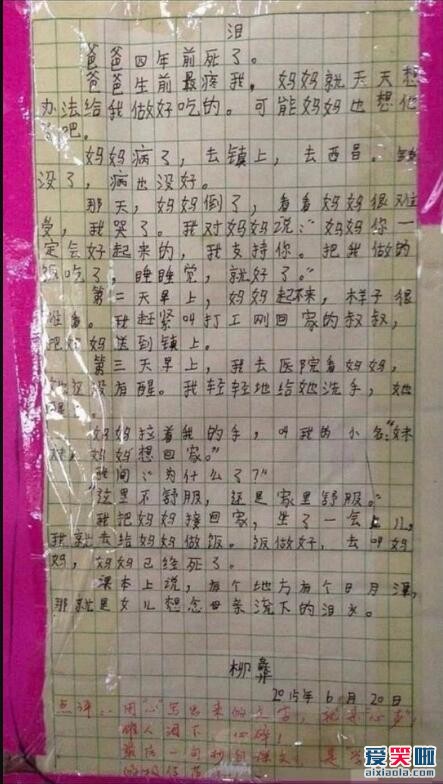 泪
爸爸四年前死了。
爸爸生前最疼我,妈妈就天天想
办法给我做好吃的。可能妈妈也想他
了吧。
妈妈病了,去镇上,去西昌。钱
没了,病也没好。
那天,妈妈倒了,看看妈妈很难
受,我哭了。我对妈妈说:“妈妈你一
定会好起来的,我支持你。把我做的
饭吃了,睡睡觉,就好了。”
第二天早上,妈妈起不来,样子很
难看。我赶紧叫打工刚回家的叔叔,
把妈妈送到镇上。
第三天早上,我去医院看妈妈,
她还没有醒。我轻轻地给她洗手,她
醒了。
妈妈拉着我的手,叫我的小名:“妹
妹,妈妈想回家。”
我问:“为什么了?”
“这里不舒服,还是家里舒服。”
我把妈妈接回家,坐了一会儿,
我就去给妈妈做饭。饭做好,去叫妈
妈,妈妈已经死了。
课本上说,有个地方有个日月潭,
那就是女儿想念母亲流下的泪水。
柳彝
2015年6月20日
点评:用“心”写出来的文字,
催人泪下,心碎!
最后一句
爱笑啦
aixiaola.com